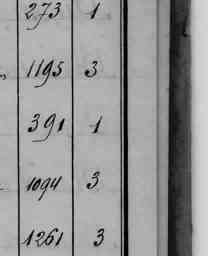 273 1
1195 3
391 1
1094 3
1261 3